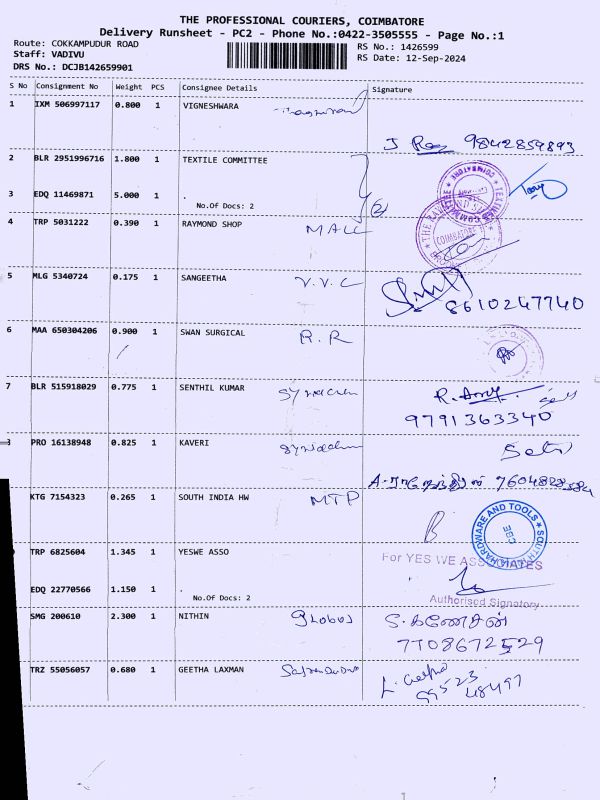 THE PROFESSIONAL COURIERS, COIMBATORE
Delivery Runsheet - PC2 - Phone No.:0422-3505555 - Page No.:1
Route: COKKAMPUDUR ROAD
RS No.: 1426599
Staff: VADIVU
RS Date: 12-Sep-2024
DRS No.: DCJB142659901
S No Consignment No Weight PCS Consignee Details Signature
1 IXM 506997117 0.800 1 VIGNESHWARA
J 9842859893
2 BLR 2951996716 1.800 1 TEXTILE COMMITTEE
3 EDQ 11469871 5.000 1 No.Of Docs: 2 (2)
4 TRP 5031222 0.390 1 RAYMOND SHOP MALL
5 MLG 5340724 0.175 1 SANGEETHA V.V.C
8610247740
6 MAA 650304206 0.900 1 SWAN SURGICAL R.R
7 BLR 515918029 0.775 1 SENTHIL KUMAR
9791363340
PRO 16138948 0.825 1 KAVERI
7604828584
KTG 7154323 0.265 1 SOUTH INDIA HW MTP
HARDWARE AND TOOLS
CBE
TRP 6825604 1.345 1 YESWE ASSO
For YES WE ASSOCIATES
EDQ 22770566 1.150 1 No.Of Docs: 2
Authorised Signatory
SMG 200610 2.300 1 NITHIN Globus
S. கணேசன்
7708672529
TRZ 55056057 0.680 1 GEETHA LAXMAN
L. Geetha
99523
48497